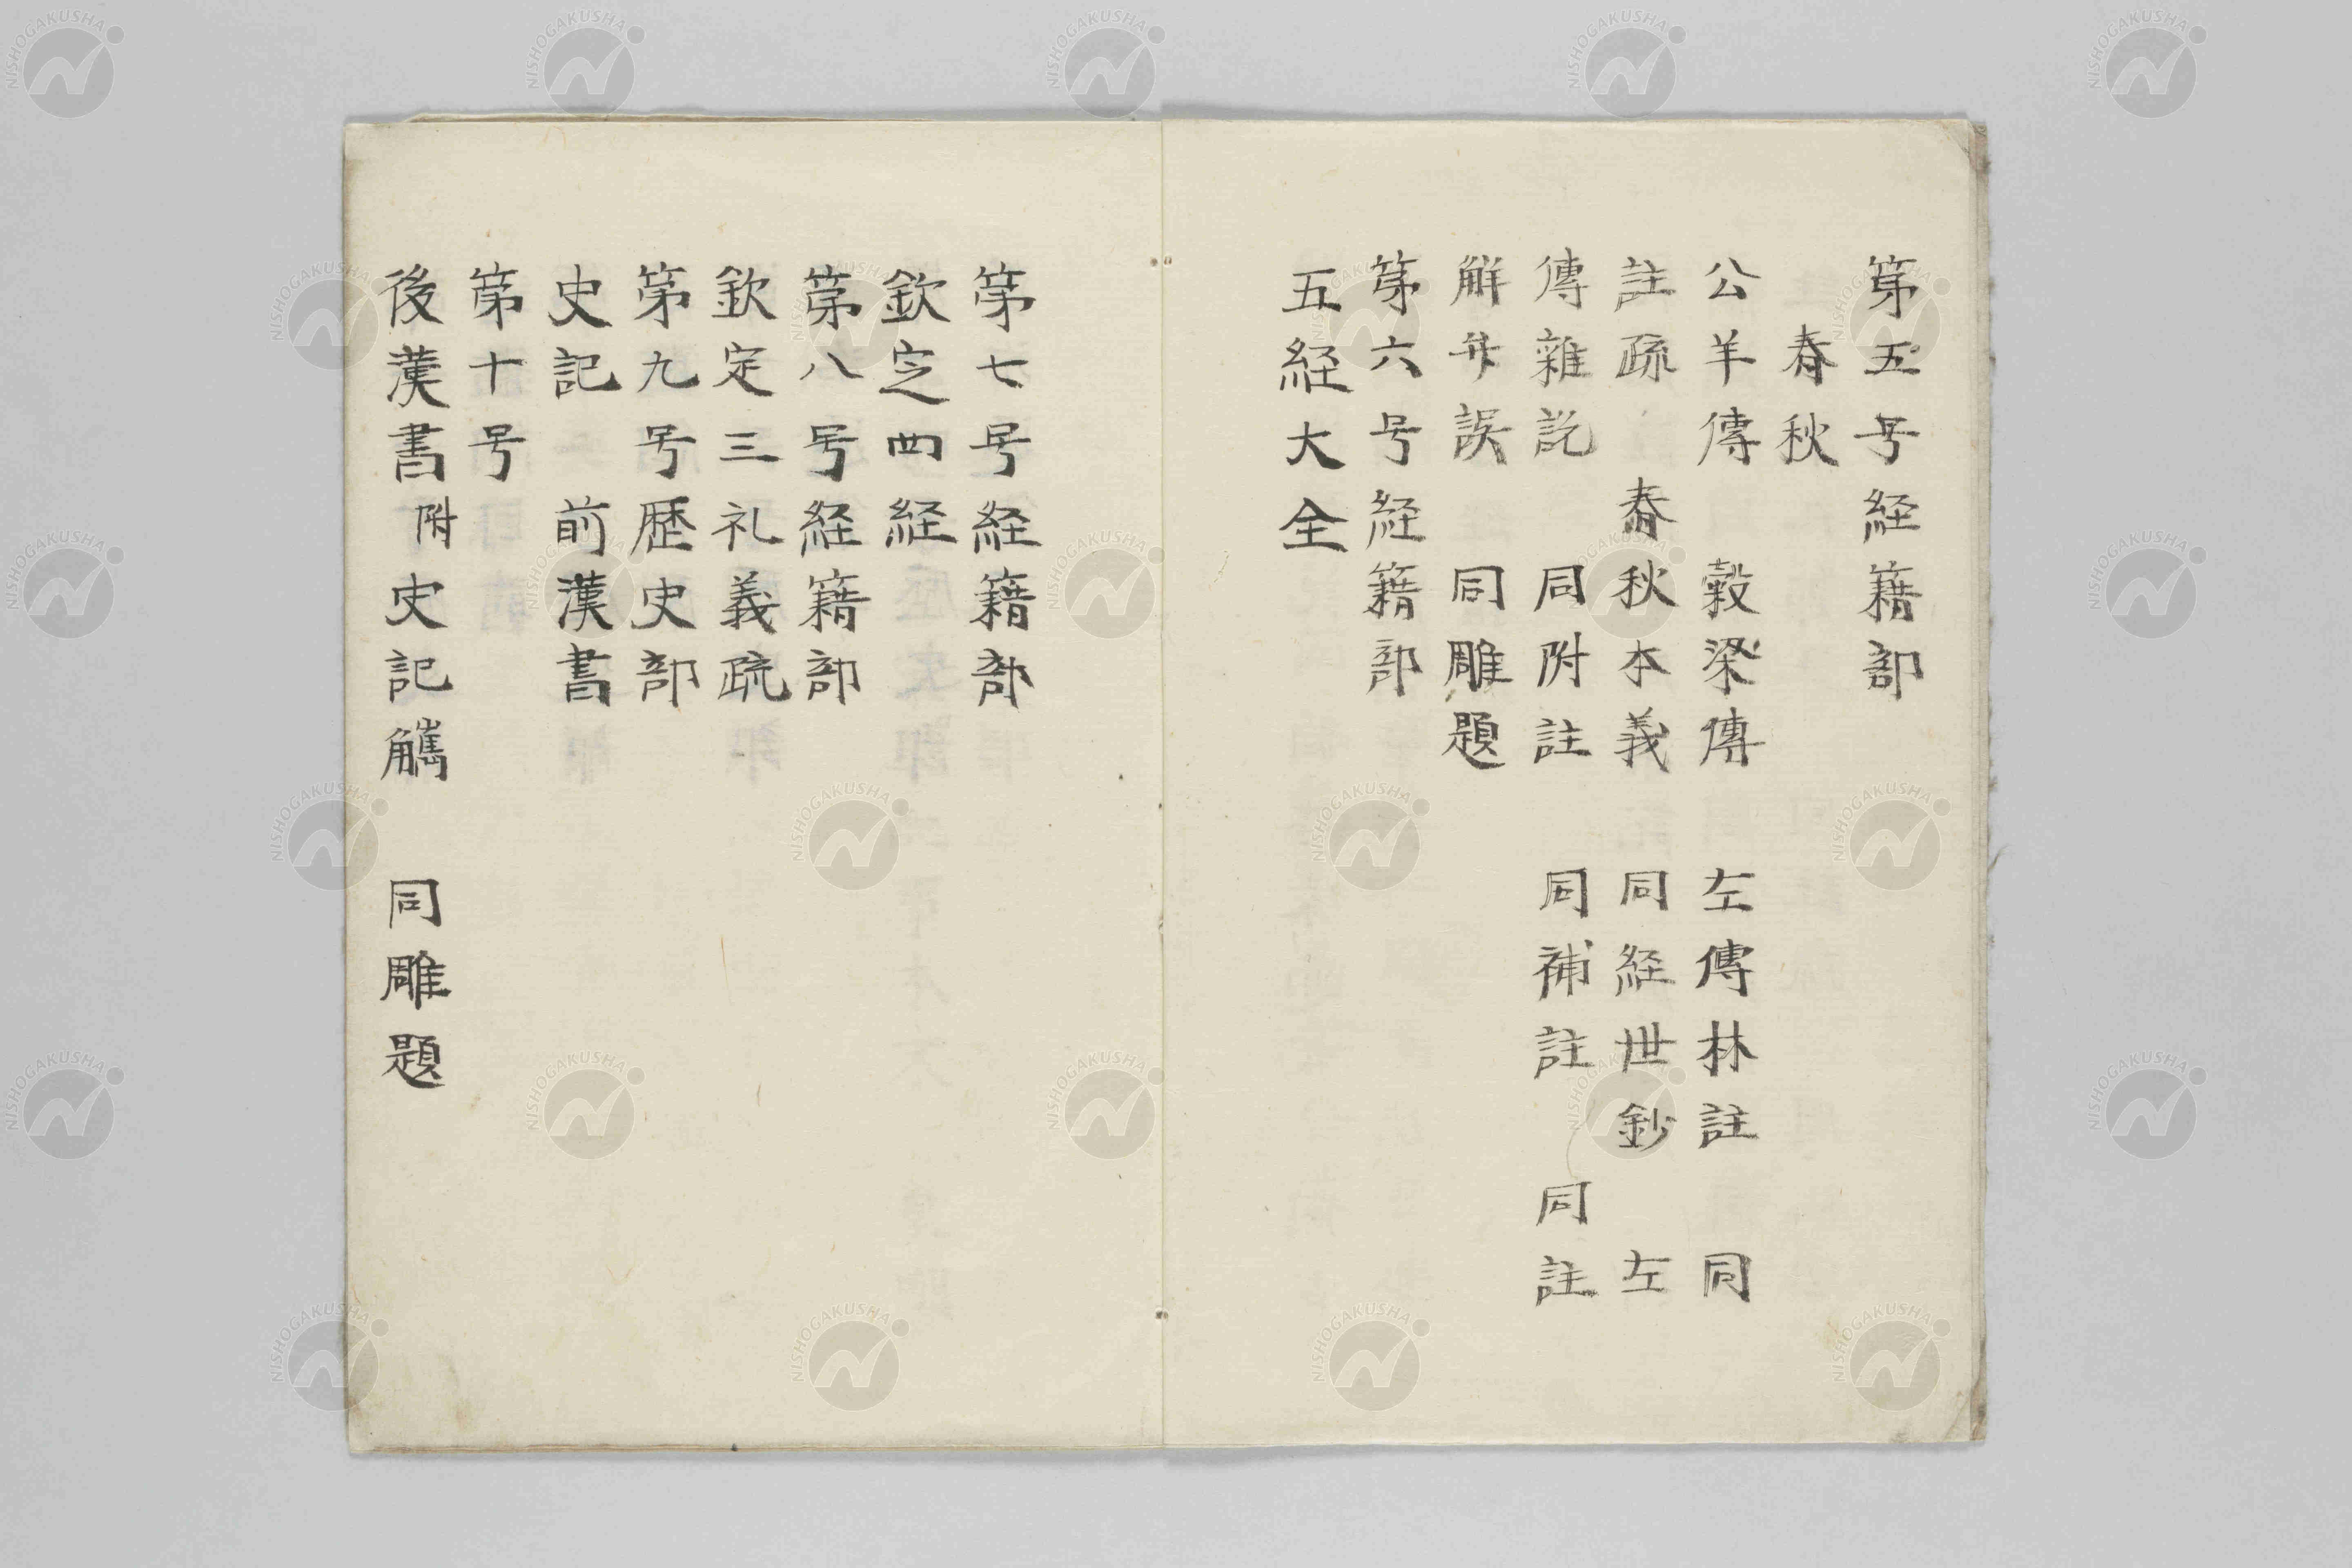 第五号経籍部
春秋
公羊傳　穀梁傳　左傳林註　同
註疏　春秋本義　同経世鈔　左
傳雜記　同附註　同補註　同註
解弁誤　同雕題
第六号経籍部
五経大全
第七号経籍部
欽定四経
第八号経籍部
欽定三礼義疏
第九号歴史部
史記　前漢書
第十号
後漢書附史記觿　同雕題
NISHOGAKUSHA